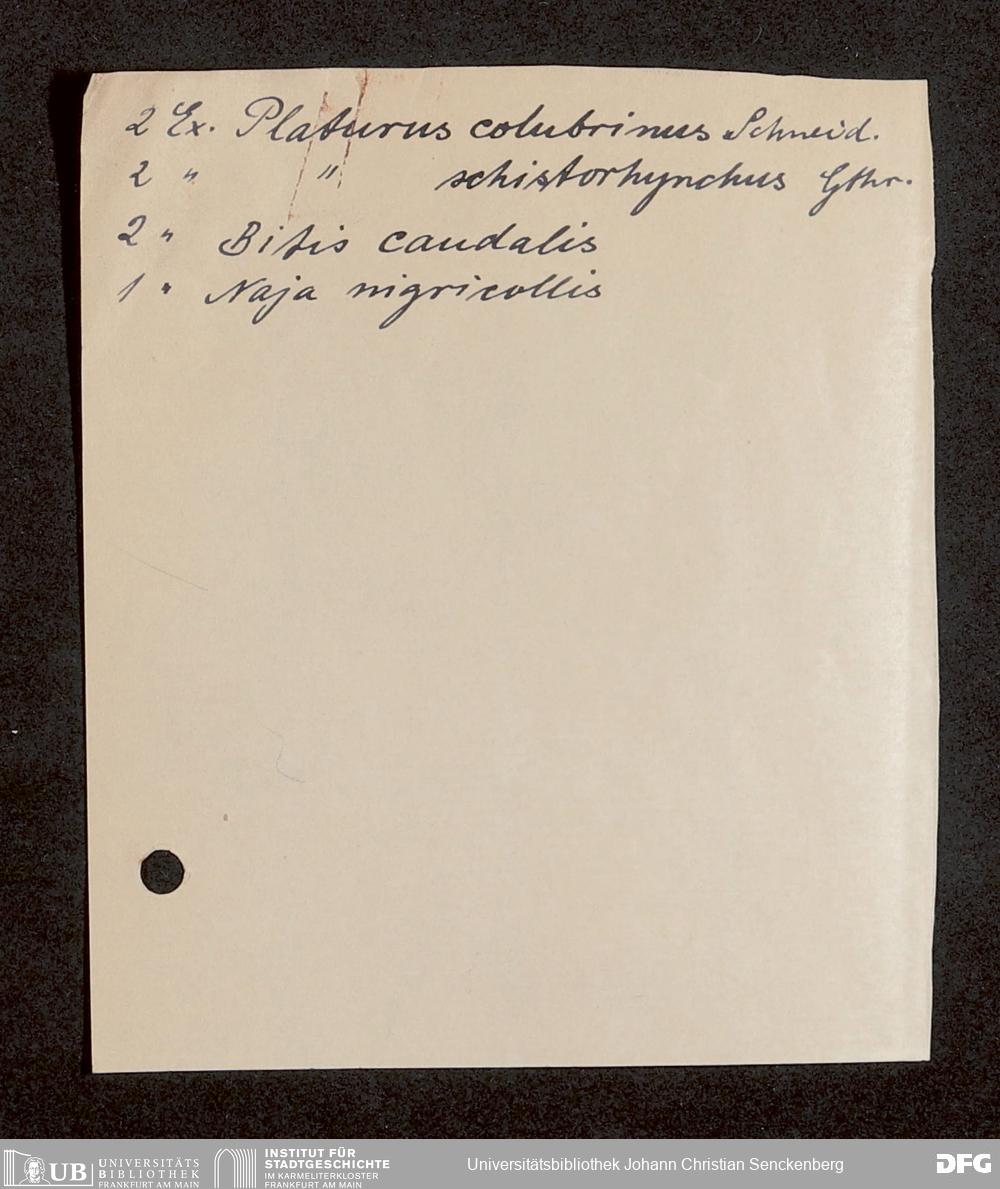 2 Ex. Platurus colubrinus Schneid.
2 " " schistorhynchus Gthr.
2 " Bitis caudalis
1 " Naja nigricollis
UB UNIVERSITÄTS BIBLIOTHEK FRANKFURT AM MAIN
INSTITUT FÜR STADTGESCHICHTE IM KARMELITERKLOSTER FRANKFURT AM MAIN
Universitätsbibliothek Johann Christian Senckenberg
DFG